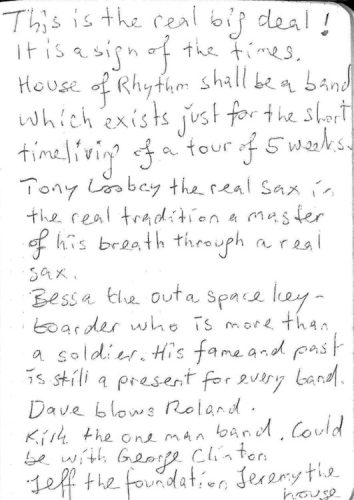 This is the real big deal!
It is a sign of the times.
House of Rhythm shall be a band
which exists just for the short
timeliving of a tour of 5 weeks.
Tony Loobey the real sax in
the real tradition a master
of his breath through a real
sax.
Bessa the outa space key-
boarder who is more than
a soldier. His fame and past
is still a present for every band.
Dave blows Roland.
Kirk the one man band. Could
be with George Clinton
Jeff the foundation, Jeremy the
house